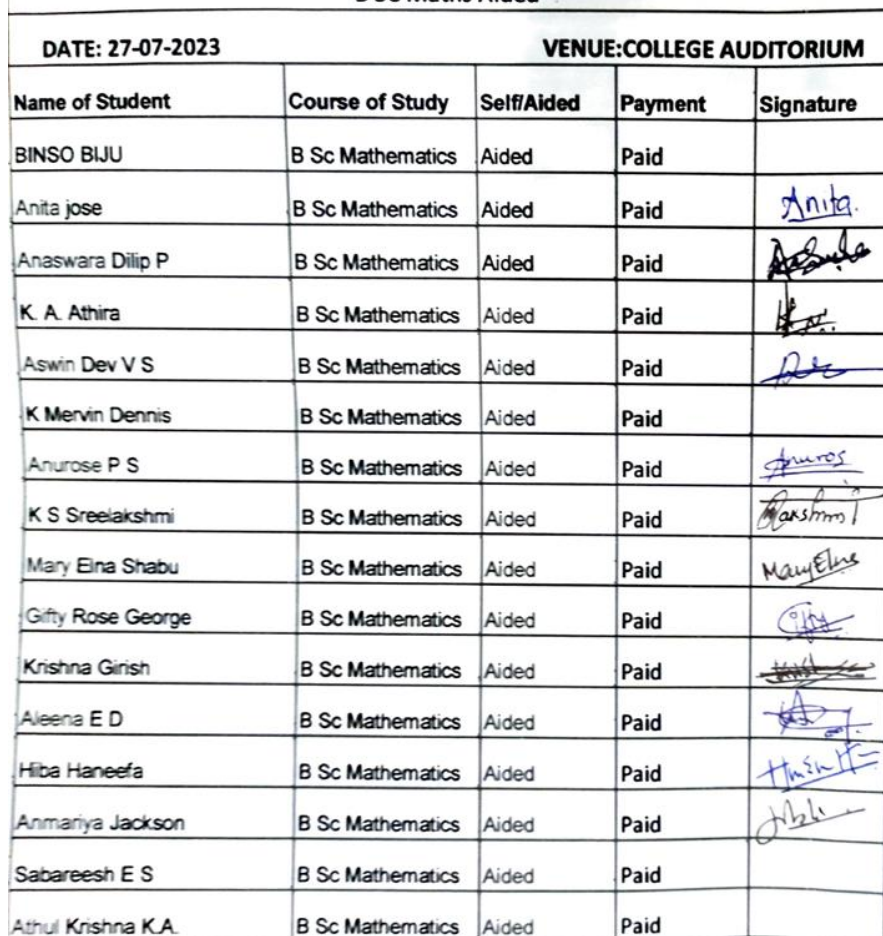 DATE: 27-07-2023 VENUE:COLLEGE AUDITORIUM
Name of Student Course of Study Self/Aided Payment Signature
BINSO BIJU B Sc Mathematics Aided Paid
Anita jose B Sc Mathematics Aided Paid Anita.
Anaswara Dilip P B Sc Mathematics Aided Paid
K. A. Athira B Sc Mathematics Aided Paid
Aswin Dev V S B Sc Mathematics Aided Paid
K Mervin Dennis B Sc Mathematics Aided Paid
Anurose P S B Sc Mathematics Aided Paid Anuros
K S Sreelakshmi B Sc Mathematics Aided Paid
Mary Elna Shabu B Sc Mathematics Aided Paid MaryElna
Gifty Rose George B Sc Mathematics Aided Paid
Krishna Girish B Sc Mathematics Aided Paid
Aleena E D B Sc Mathematics Aided Paid
Hiba Haneefa B Sc Mathematics Aided Paid
Anmariya Jackson B Sc Mathematics Aided Paid
Sabareesh E S B Sc Mathematics Aided Paid
Athul Krishna K.A. B Sc Mathematics Aided Paid